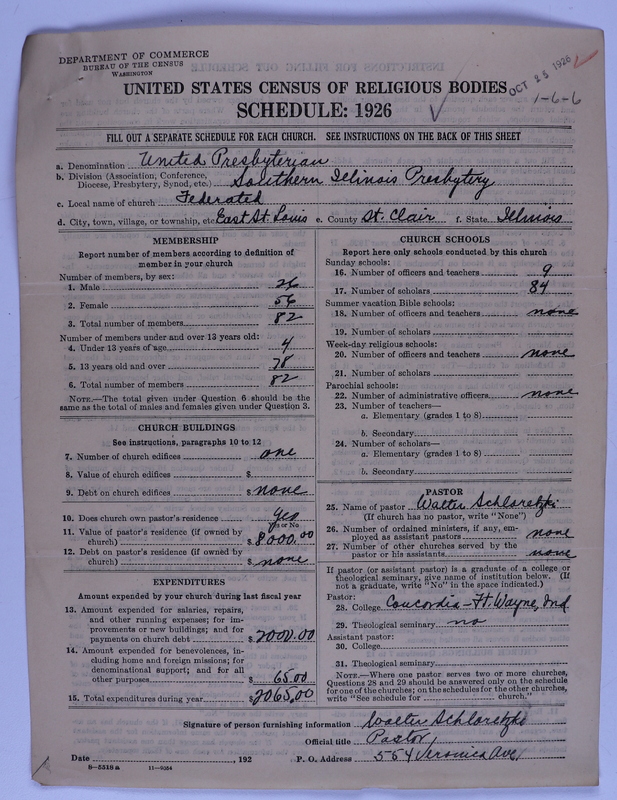 DEPARTMENT OF COMMERCE
BUREAU OF THE CENSUS
WASHINGTON
OCT 25 1926
1-6-6
UNITED STATES CENSUS OF RELIGIOUS BODIES
SCHEDULE: 1926
FILL OUT A SEPARATE SCHEDULE FOR EACH CHURCH. SEE INSTRUCTIONS ON THE BACK OF THIS SHEET
a. Denomination United Presbyterian
b. Division (Association, Conference, Diocese, Presbytery, Synod, etc.) Southern Illinois Presbytery
c. Local name of church Federated
d. City, town, village, or township, etc. East St. Louis e. County St. Clair f. State Illinois
MEMBERSHIP
Report number of members according to definition of
member in your church
Number of members, by sex:
1. Male 26
2. Female 56
3. Total number of members 82
Number of members under and over 13 years old:
4. Under 13 years of age 4
5. 13 years old and over 78
6. Total number of members 82
NOTE.—The total given under Question 6 should be
same as the total of males and females given under Question 3.
CHURCH BUILDINGS
See instructions, paragraphs 10 to 12
7. Number of church edifices one
8. Value of church edifices $
9. Debt on church edifices $ none
10. Does church own pastor's residence yes
Yes or No
11. Value of pastor's residence (if owned by
church) $ 8000.00
12. Debt on pastor's residence (if owned by
church) $ none
EXPENDITURES
Amount expended by your church during last fiscal year
13. Amount expended for salaries, repairs,
and other running expenses; for im-
provements or new buildings; and for
payments on church debt $ 2000.00
14. Amount expended for benevolences, in-
cluding home and foreign missions; for
denominational support; and for all
other purposes $ 65.00
15. Total expenditures during year $ 2065.00
CHURCH SCHOOLS
Report here only schools conducted by this church
Sunday schools:
16. Number of officers and teachers 9
17. Number of scholars 84
Summer vacation Bible schools:
18. Number of officers and teachers none
19. Number of scholars
Week-day religious schools:
20. Number of officers and teachers none
21. Number of scholars
Parochial schools:
22. Number of administrative officers none
23. Number of teachers—
a. Elementary (grades 1 to 8)
b. Secondary
24. Number of scholars—
a. Elementary (grades 1 to 8)
b. Secondary
PASTOR
25. Name of pastor Walter Schloretzki
(If church has no pastor, write "None")
26. Number of ordained ministers, if any, em-
ployed as assistant pastors none
27. Number of other churches served by the
pastor or his assistants none
If pastor (or assistant pastor) is a graduate of a college or
theological seminary, give name of institution below. (If
not a graduate, write "No" in the space indicated.)
Pastor:
28. College Concordia - Ft. Wayne, Ind
29. Theological seminary no
Assistant pastor:
30. College
31. Theological seminary
NOTE.—Where one pastor serves two or more churches,
Questions 28 and 29 should be answered only on the schedule
for one of the churches; on the schedules for the other churches,
write "See schedule for church."
Signature of person furnishing information Walter Schloretzki
Official title Pastor
Date , 192 P. O. Address 554 Veronica Ave
8-5518 a 11-9054